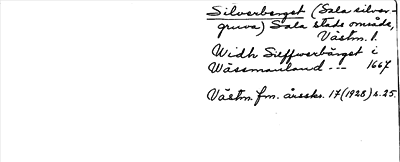 Silverberget (Sala silver-
gruva) Sala stads område,
Västm. l.
Widh Sieffwerbärget i
Wässmanland --- 1667
Västm. fm. årsskr. 17 (1928) s. 25.